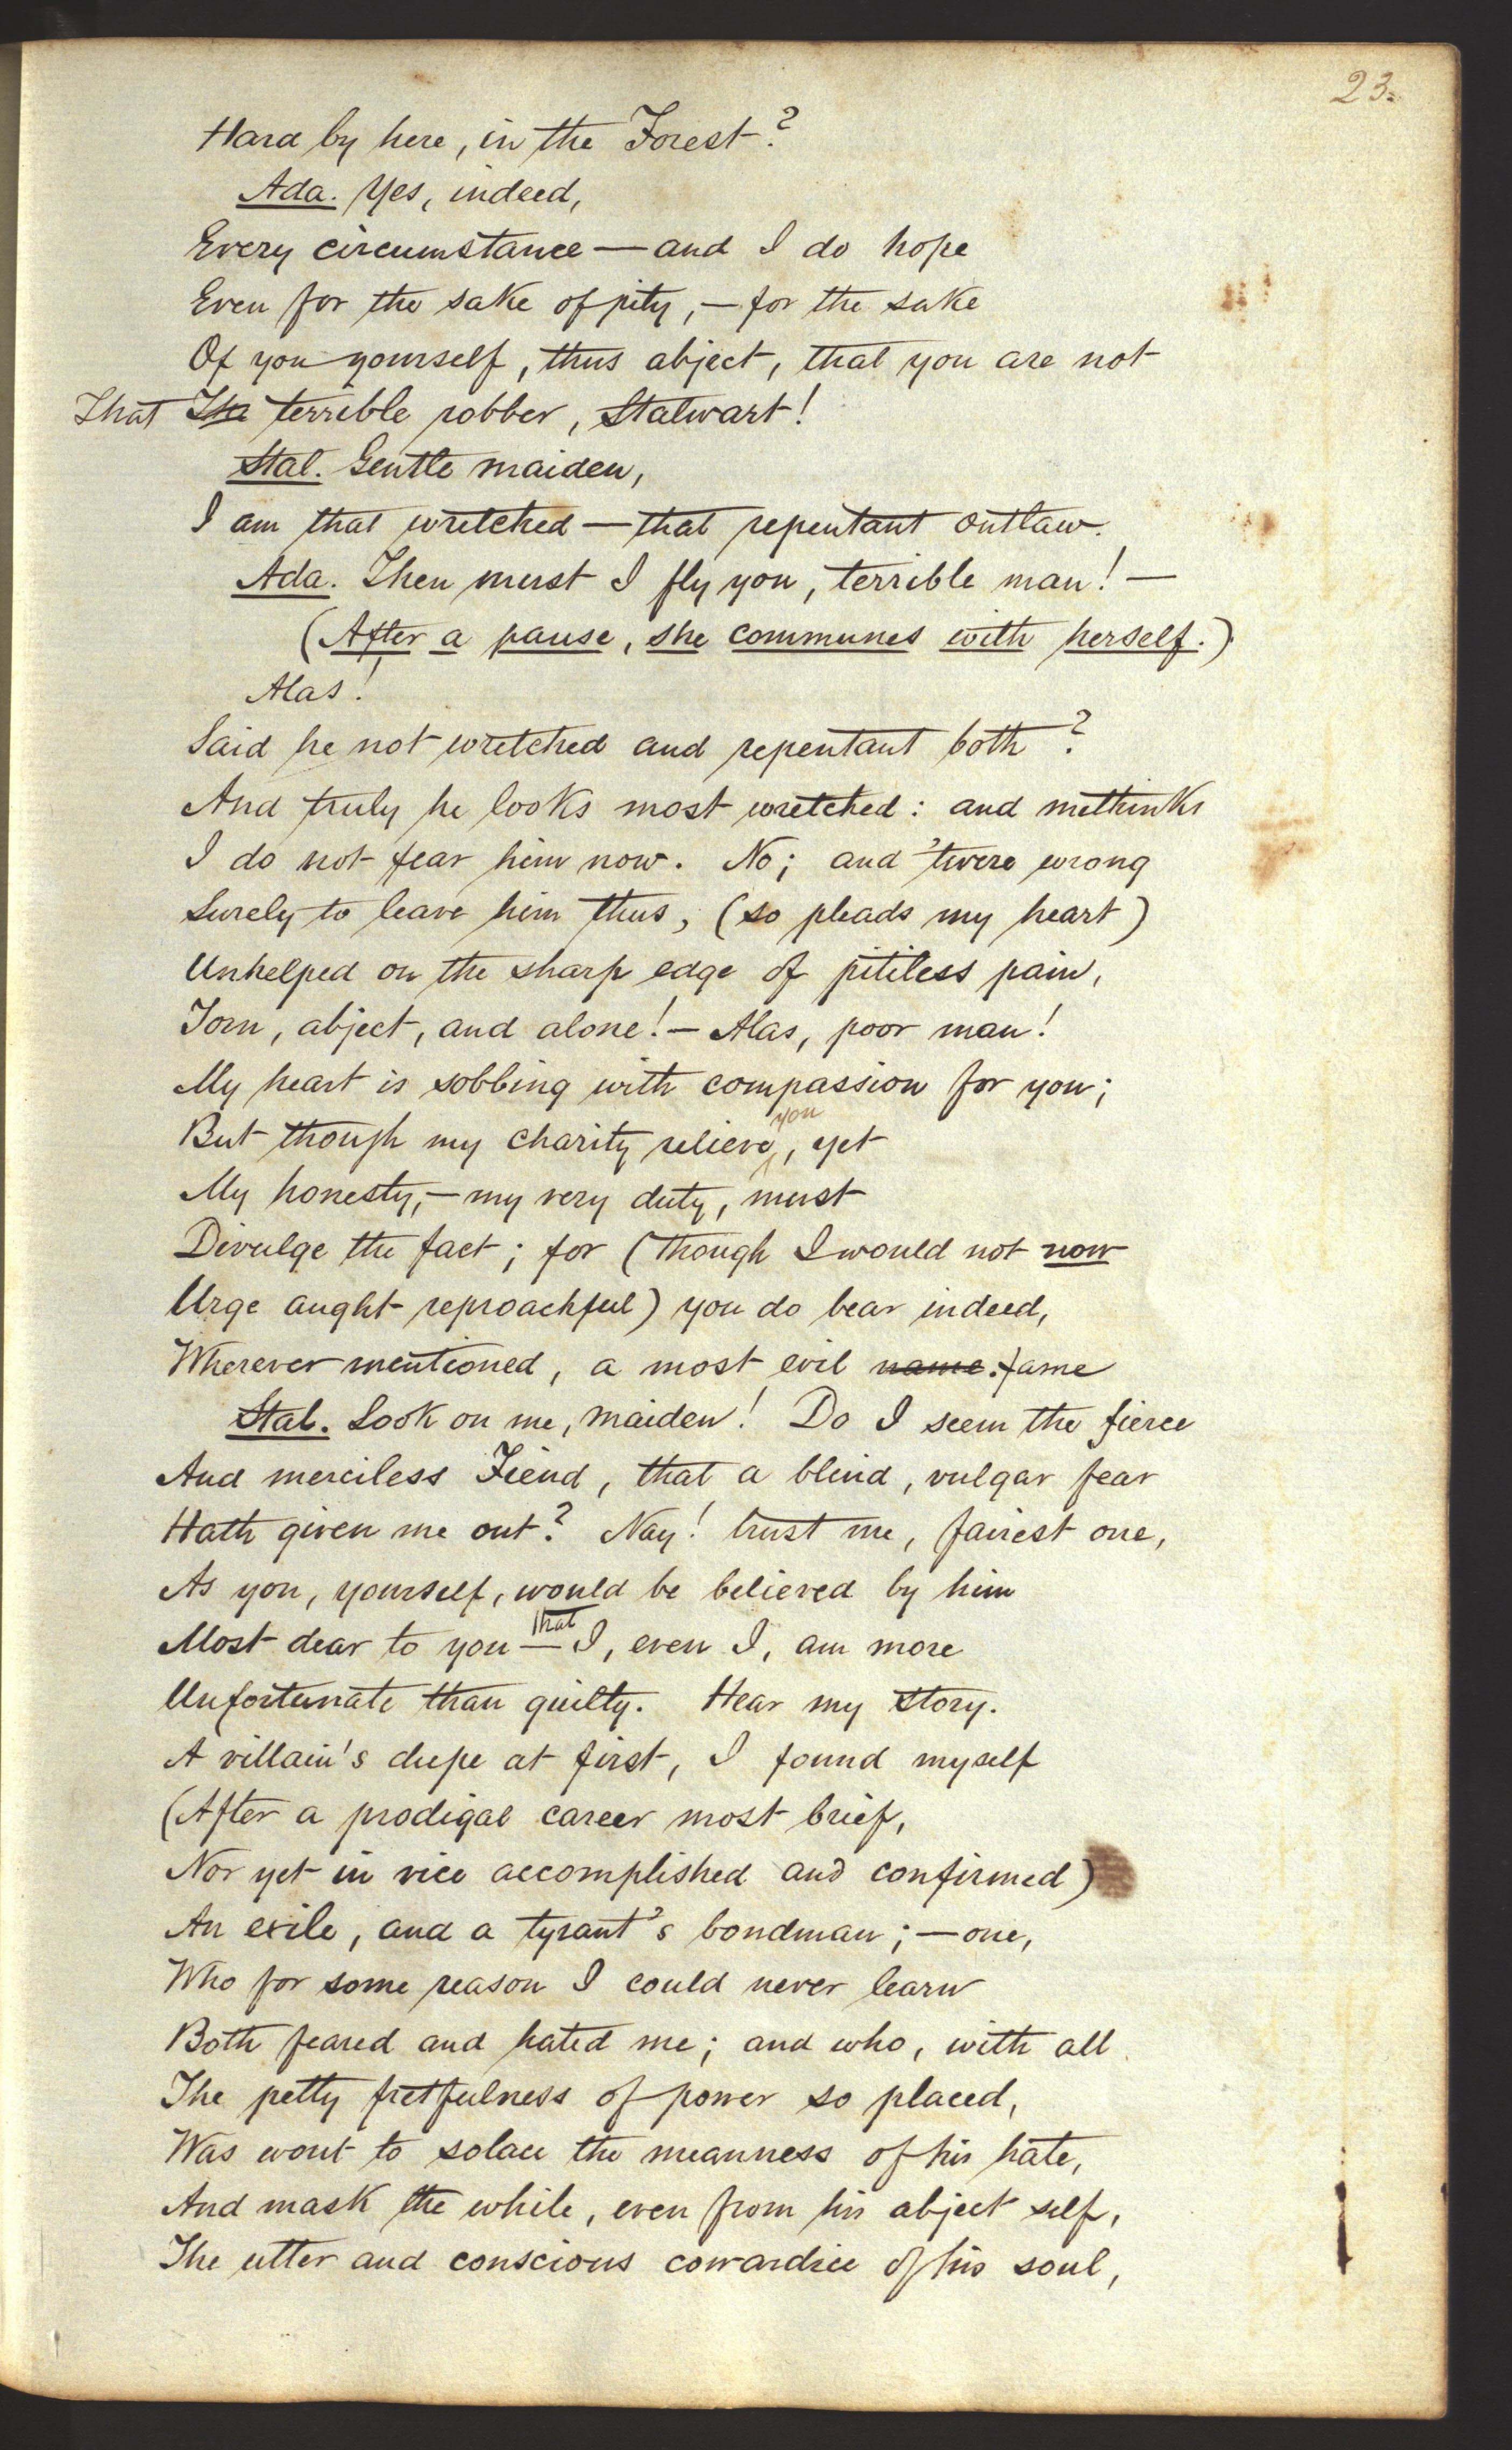 23.
Hard by here, in the Forest?
Ada. Yes, indeed,
Every circumstance — and I do hope
Even for the sake of pity, — for the sake
Of you yourself, thus abject, that you are not
That The terrible robber, Stalwart!
Stal. Gentle maiden,
I am that wretched — that repentant outlaw.
Ada. Then must I fly you, terrible man! —
(After a pause, she communes with herself.)
Alas!
Said he not wretched and repentant both?
And truly he looks most wretched: and methinks
I do not fear him now. No; and 'twere wrong
Surely to leave him thus, (so pleads my heart)
Unhelped on the sharp edge of pitiless pain,
Torn, abject, and alone! — Alas, poor man!
My heart is sobbing with compassion for you;
But though my charity relieve you, yet
My honesty, — my very duty, must
Divulge the fact; for (though I would not now
Urge aught reproachful) you do bear indeed,
Wherever mentioned, a most evil name. fame
Stal. Look on me, maiden! Do I seem the fierce
And merciless Fiend, that a blind, vulgar fear
Hath given me out? Nay! trust me, fairest one,
As you, yourself, would be believed by him
Most dear to you — that I, even I, am more
Unfortunate than guilty. Hear my story.
A villain's dupe at first, I found myself
(After a prodigal career most brief,
Nor yet in vice accomplished and confirmed)
An exile, and a tyrant's bondman; — one,
Who for some reason I could never learn
Both feared and hated me; and who, with all
The petty fretfulness of power so placed,
Was wont to solace the meanness of his hate,
And mask the while, even from his abject self,
The utter and conscious cowardice of his soul,